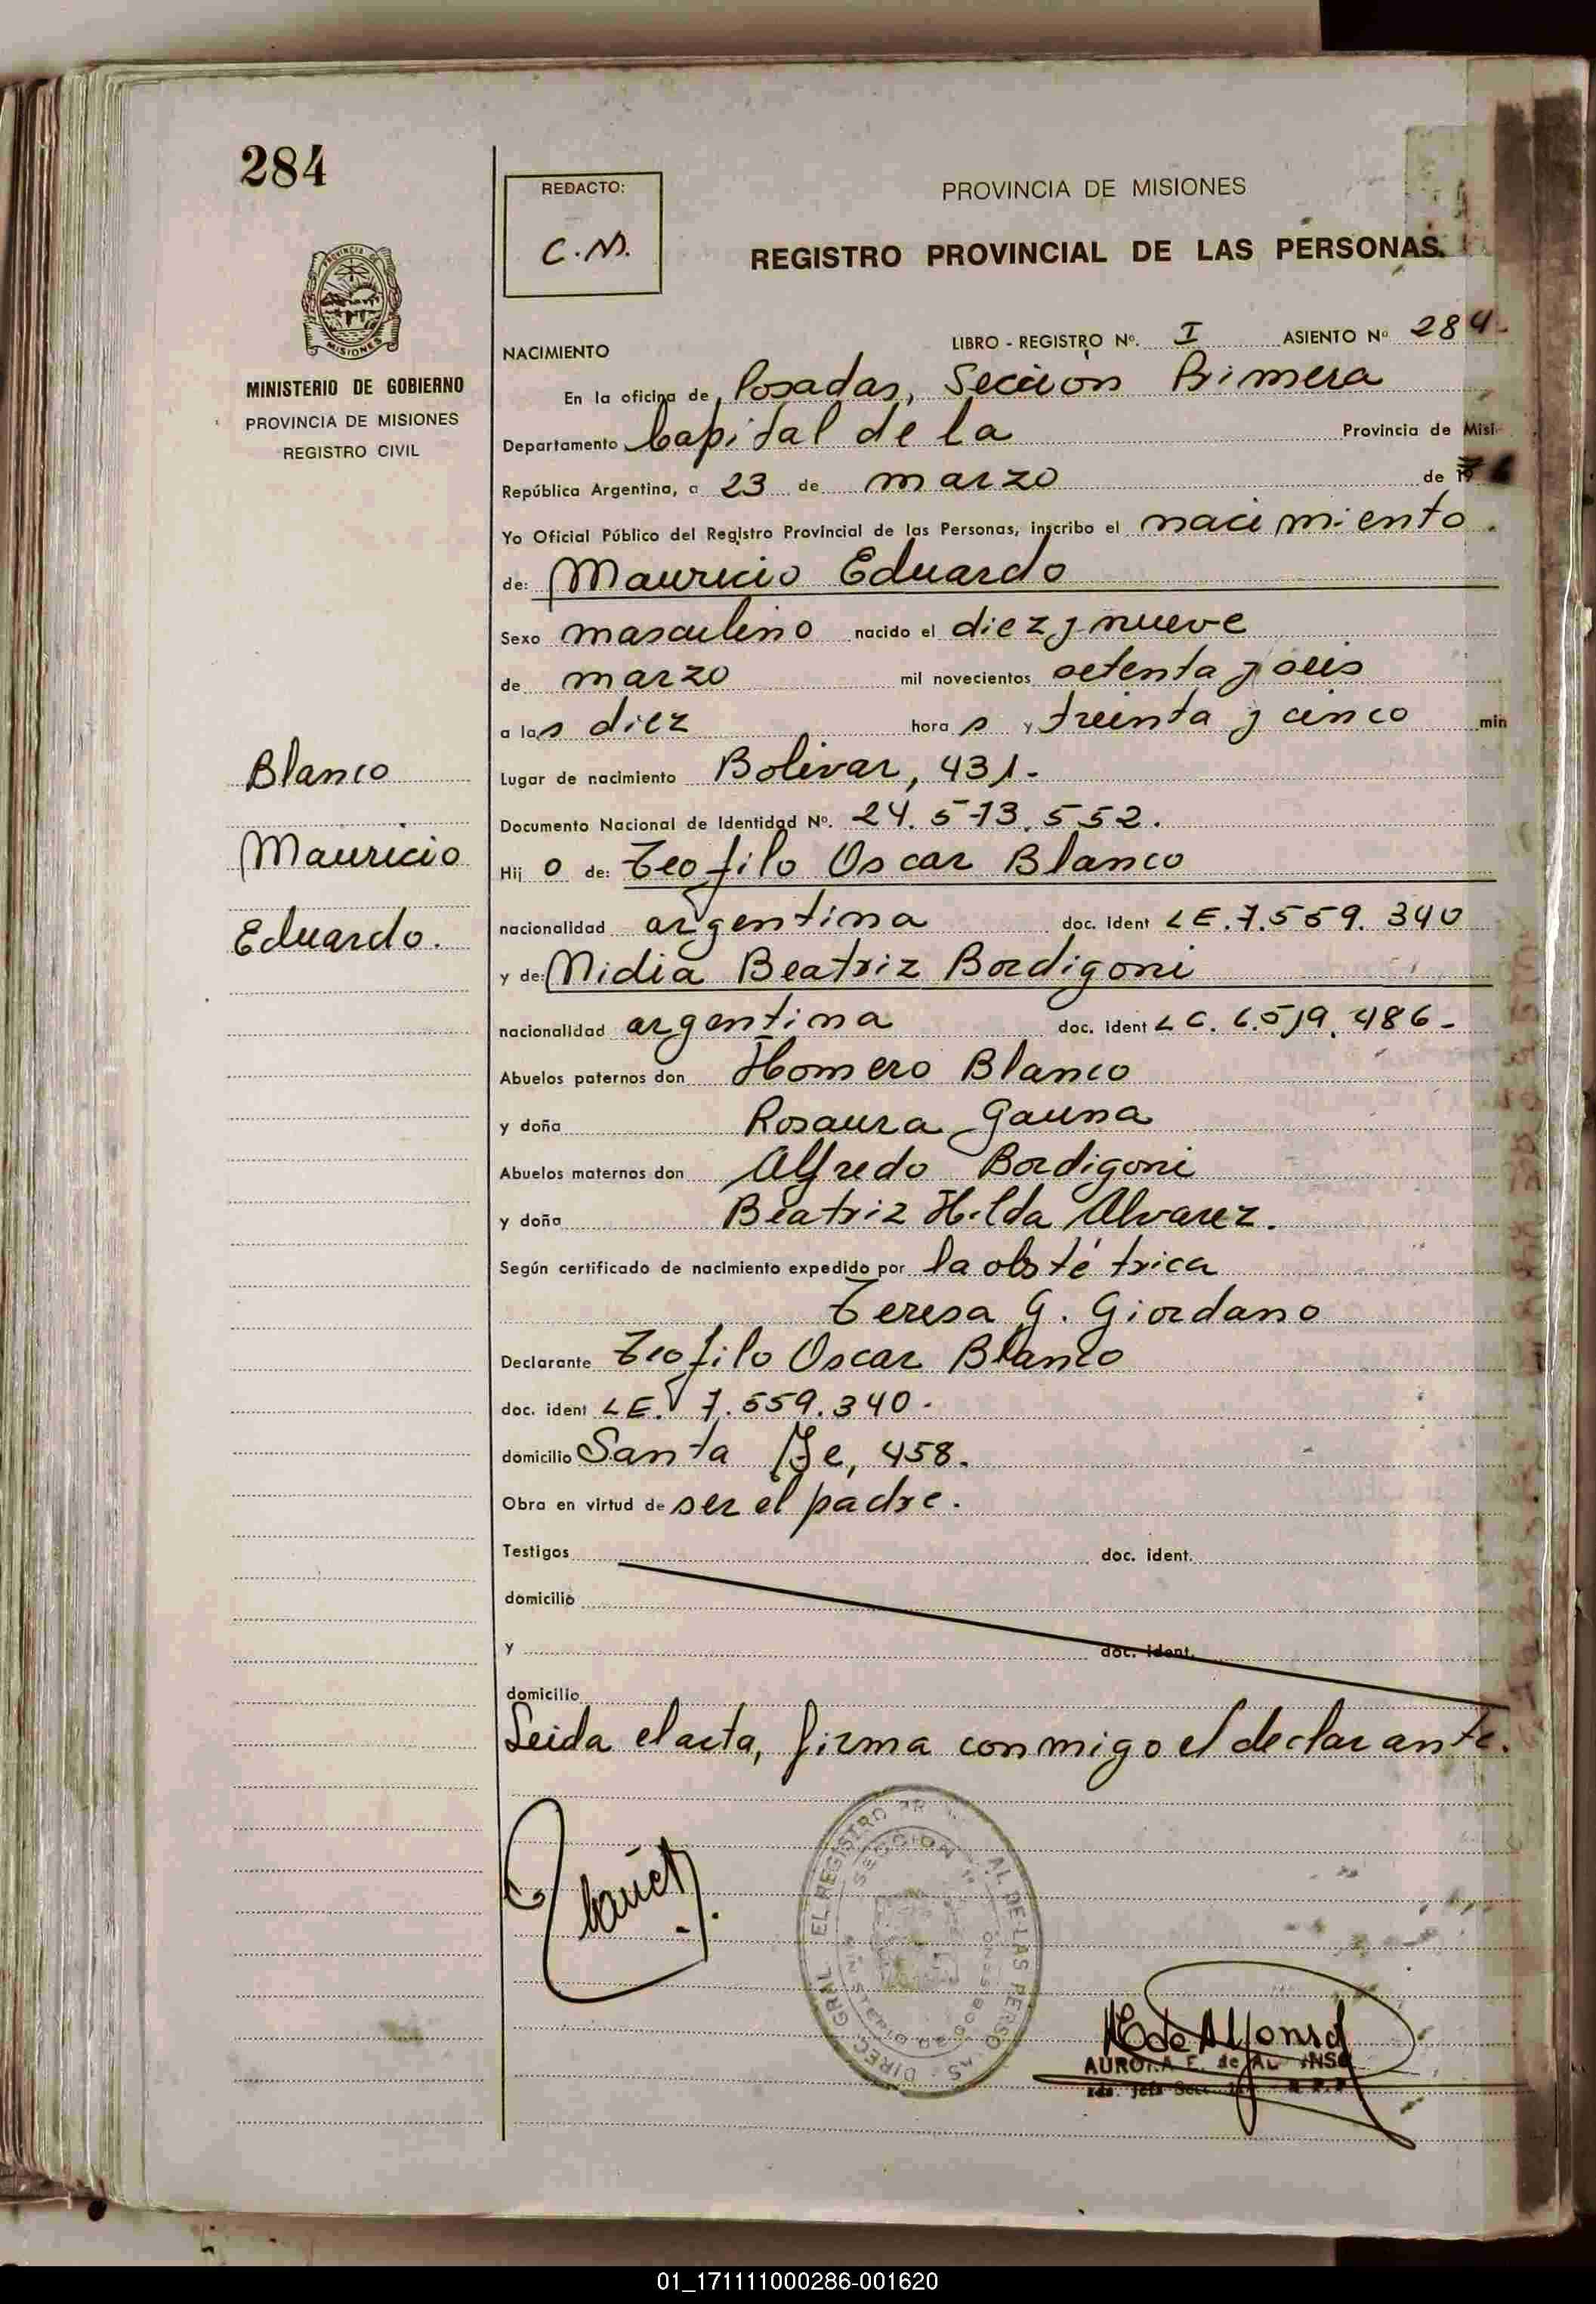 284
PROVINCIA DE MISIONES
MINISTERIO DE GOBIERNO
PROVINCIA DE MISIONES
REGISTRO CIVIL
Blanco
Mauricio
Eduardo.
REDACTO:
C.M.
PROVINCIA DE MISIONES
REGISTRO PROVINCIAL DE LAS PERSONAS.
NACIMIENTO LIBRO - REGISTRO Nº. I ASIENTO Nº 284-
En la oficina de Posadas, Sección Primera
Departamento Capital de la Provincia de Misi-
República Argentina, a 23 de marzo de 1976
Yo Oficial Público del Registro Provincial de las Personas, inscribo el nacimiento.
de: Mauricio Eduardo
Sexo masculino nacido el diez y nueve
de marzo mil novecientos setenta y seis
a las diez horas y treinta y cinco min
Lugar de nacimiento Bolivar, 431.-
Documento Nacional de Identidad Nº. 24.573.552.
Hijo de: Teofilo Oscar Blanco
nacionalidad argentina doc. Ident LE.7.559.340
y de: Nidia Beatriz Bordigoni
nacionalidad argentina doc. ident LC. 6.519.486-
Abuelos paternos don Homero Blanco
y doña Rosaura Gauna
Abuelos maternos don Alfredo Bordigoni
y doña Beatriz Hilda Alvarez.
Según certificado de nacimiento expedido por la obstétrica
Teresa G. Giordano
Declarante Teofilo Oscar Blanco
doc. ident LE. 7.559.340.
domicilio Santa Fe, 458.
Obra en virtud de ser el padre.
Testigos doc. ident.
domicilio
y doc. ident.
domicilio
Leida el acta, firma conmigo el declarante.
DIREC. GRAL. EL REGISTRO PR AL DE LAS PERSO AS
SECCION 1ª
AURORA E. de ALFONSO
01_171111000286-001620